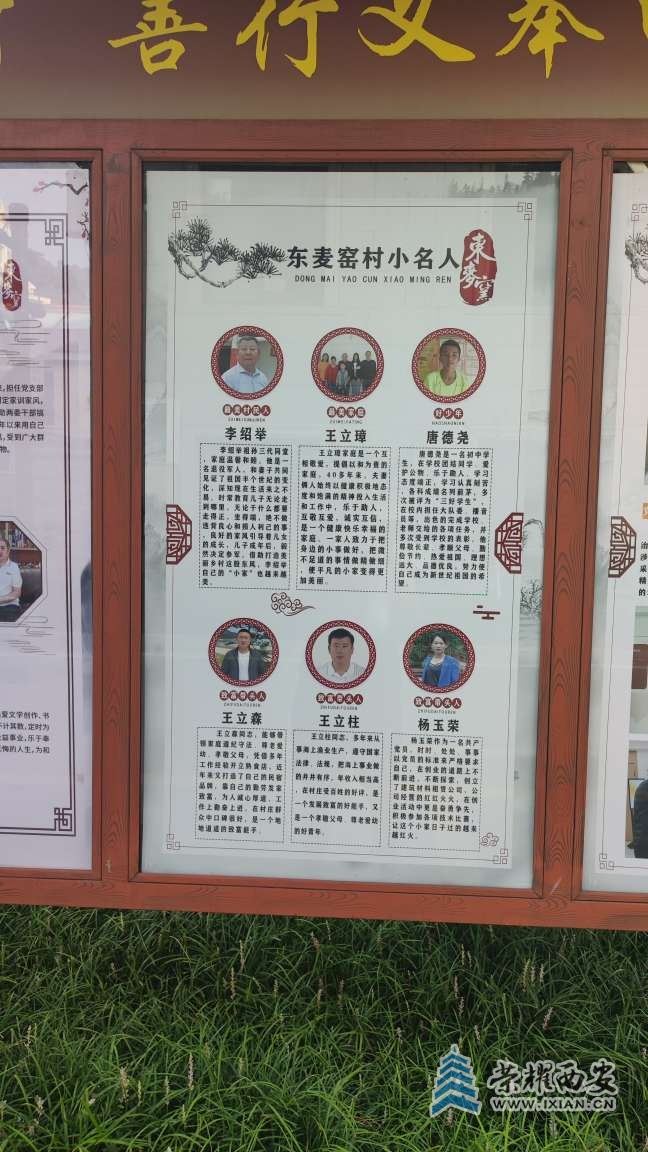 善行义举
东麦窑村小名人
DONG MAI YAO CUN XIAO MING REN
東麥窯
最美村民人
李绍举
李绍举祖孙三代同堂
，家庭温馨和睦。他是一
名退役军人，和妻子共同
见证了祖国半个世纪的变
化，深知现在生活来之不
易，时常教育儿子无论走
到哪里，无论干什么都要
走得正，坐得端，绝不做
违背良心和损人利己的事
，良好的家风引导着儿女
的成长，儿子成年后，毅
然决定参军。借助打造美
丽乡村这股东风，李绍举
自己的“小家”也越来越
美。
最美家庭
王立璋
王立璋家庭是一个互
相敬爱、提倡以和为贵的
家庭，40多年来，夫妻
俩人始终以健康积极地态
度和饱满的精神投入生活
和工作中，乐于助人，
互敬互爱，诚实互信，
是一个健康快乐幸福的
家庭。一家人致力于把
身边的小事做好，把微
不足道的事情做精做细
，使平凡的小家变得更
加美丽。
好少年
唐德尧
唐德尧是一名初中学
生，在学校团结同学、爱
护公物、乐于助人，学习
态度端正，学习认真刻苦
，各科成绩名列前茅，多
次被评为“三好学生”，
在校内担任大队委、播音
员等，出色的完成学校、
老师交给的各项任务，并
多次受到学校的表彰。他
尊敬长辈、孝顺父母、勤
俭节约、热爱祖国、理想
远大、品德优良，努力使
自己成为新世纪祖国的希
望。
致富带头人
王立森
王立森同志，能够带
领家庭遵纪守法、尊老爱
幼、孝敬父母，凭借多年
工作经验开立熟食店，近
年来又打造了自己的民宿
品牌，靠自己的勤劳发家
致富，为人诚心厚道，工
作上勤奋上进，在村庄群
众中口碑很好，是一个地
地道道的致富能手。
致富带头人
王立柱
王立柱同志，多年来从
事海上渔业生产，遵守国家
法律、法规，把海上事业做
的井井有序，年收入相当高
，在村庄受百姓的好评，是
一个发展致富的好能手，又
是一个孝敬父母、尊老爱幼
的好青年。
致富带头人
杨玉荣
杨玉荣作为一名共产
党员，时时、处处、事事
以党员的标准来严格要求
自己，在创业的道路上不
断前进、不断探索，创立
了建筑材料租赁公司，公
司经营的红红火火，在创
业活动中更是奋勇争先，
积极参加各项技术比赛，
让这个小家日子过的越来
越红火。
担任党支部
定家训家风，
年以来用自己
，受到广大群
爱文学创作、书
不计其数，定时为
益事业，乐于奉
无悔的人生，为和
荣耀西安
WWW.IXIAN.CN